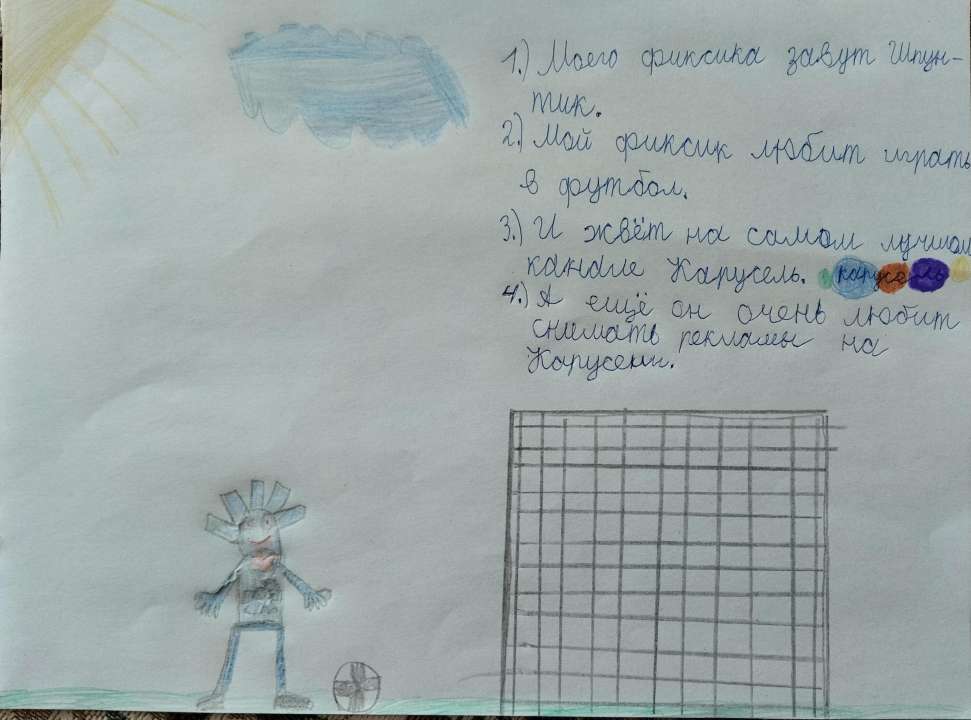 1.) Моего фиксика завут Шпун-
тик.
2.) Мой фиксик любит играть
в футбол.
3.) И жвёт на самом лучшом
канале Карусель. карусель
4.) А ещё он очень любит
снимать рекламы на
Карусели.